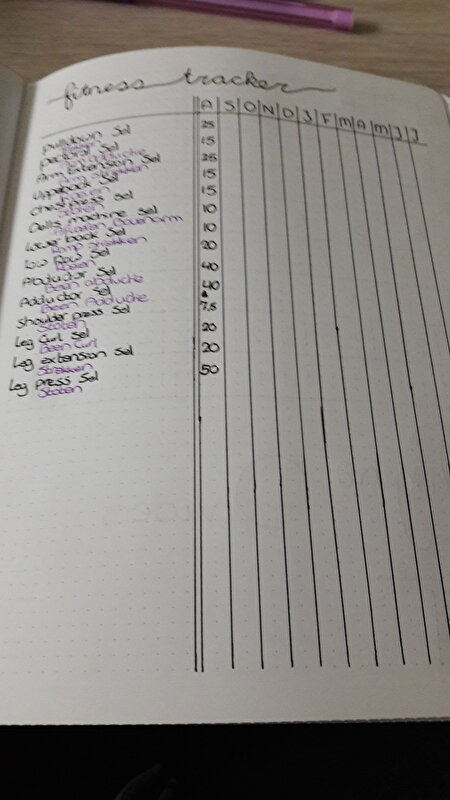 fitness tracker
A S O N D J F M A M J J
pulldown Sel 25
pectoral Sel 15
Arm Extension Sel 25
Upperback Sel 15
chest press Sel 15
Stoten
Delts machine Sel 10
Bovenarm
Lower back Sel 10
Romp Strekken
low Row Sel 20
Roeien
Abductor Sel 40
Been abductie
Adductor Sel 40
Been Adductie
shoulder press Sel 7,5
Stoten
Leg Curl Sel 20
Been Curl
Leg extension Sel 20
Strekken
Leg press Sel 50
Stoten